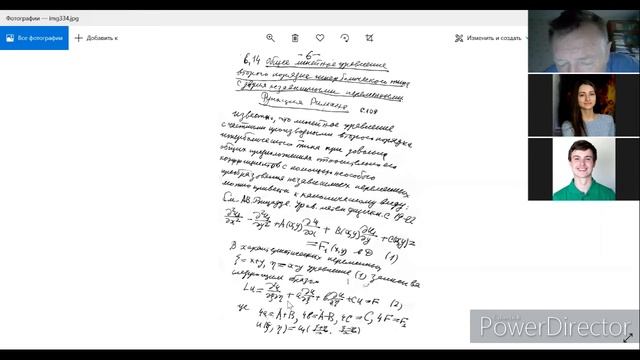 Фотографии — img334.jpg
Все фотографии
Добавить к
Изменить и создать
-6-
6,14 Общее линейное уравнение
второго порядка гиперболического типа
с двумя независимыми переменными
Функция Римана с.109
Известно, что линейное уравнение
с частными производными второго порядка
гиперболического типа при довольно
общих предположениях относительно его
коэффициентов с помощью неособого
преобразования независимых переменных
можно привести к каноническому виду:
См. АВ. Бицадзе. Урав. С 19-22
∂²u₁/∂x² - ∂²u₁/∂y² + A(x,y) ∂u₁/∂x + B(x,y) ∂u₁/∂y + C(x,y) =
= F₁(x,y) в D (1)
В характеристических переменных
ξ = x+y, η = x-y уравнение (1) запис
следующим образом
Lu = ∂²u/∂ξ∂η + a ∂u/∂ξ + b ∂u/∂η + cu = F (2)
где 4a = A+B, 4b = A-B, 4c = C, 4F = F₁
u(ξ, η) = u₁(ξ+η/2, ξ-η/2)
PowerDirector